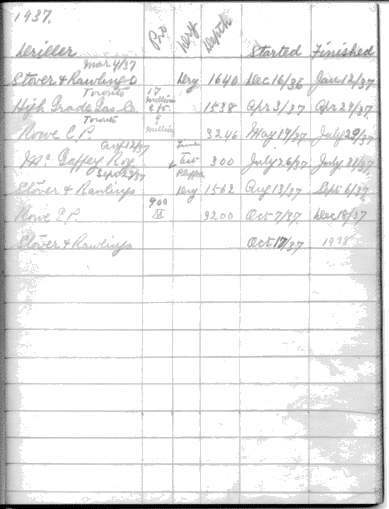 1937.
Driller Dry Depth Started Finished
Mar 4/37
Stover & Rawlings Dry 1640 Dec 16/36 Jan 12/37
Toronto 17 million
High Grade Gas Co. 1538 Apr 3/37 Apr 24/37
Toronto 9 million
Rowe E P. 3246 May 19/37 July 29/37
Aug 12/37
Roy. 300 July 26/37 July 31/37
Sept 23/37
Stover & Rawlings Dry 1562 Aug 13/37 Sept 6/37
900
Rowe E P. 3200 Oct 7/37 Dec 18/37
Stover & Rawlings Oct 17/37 1938